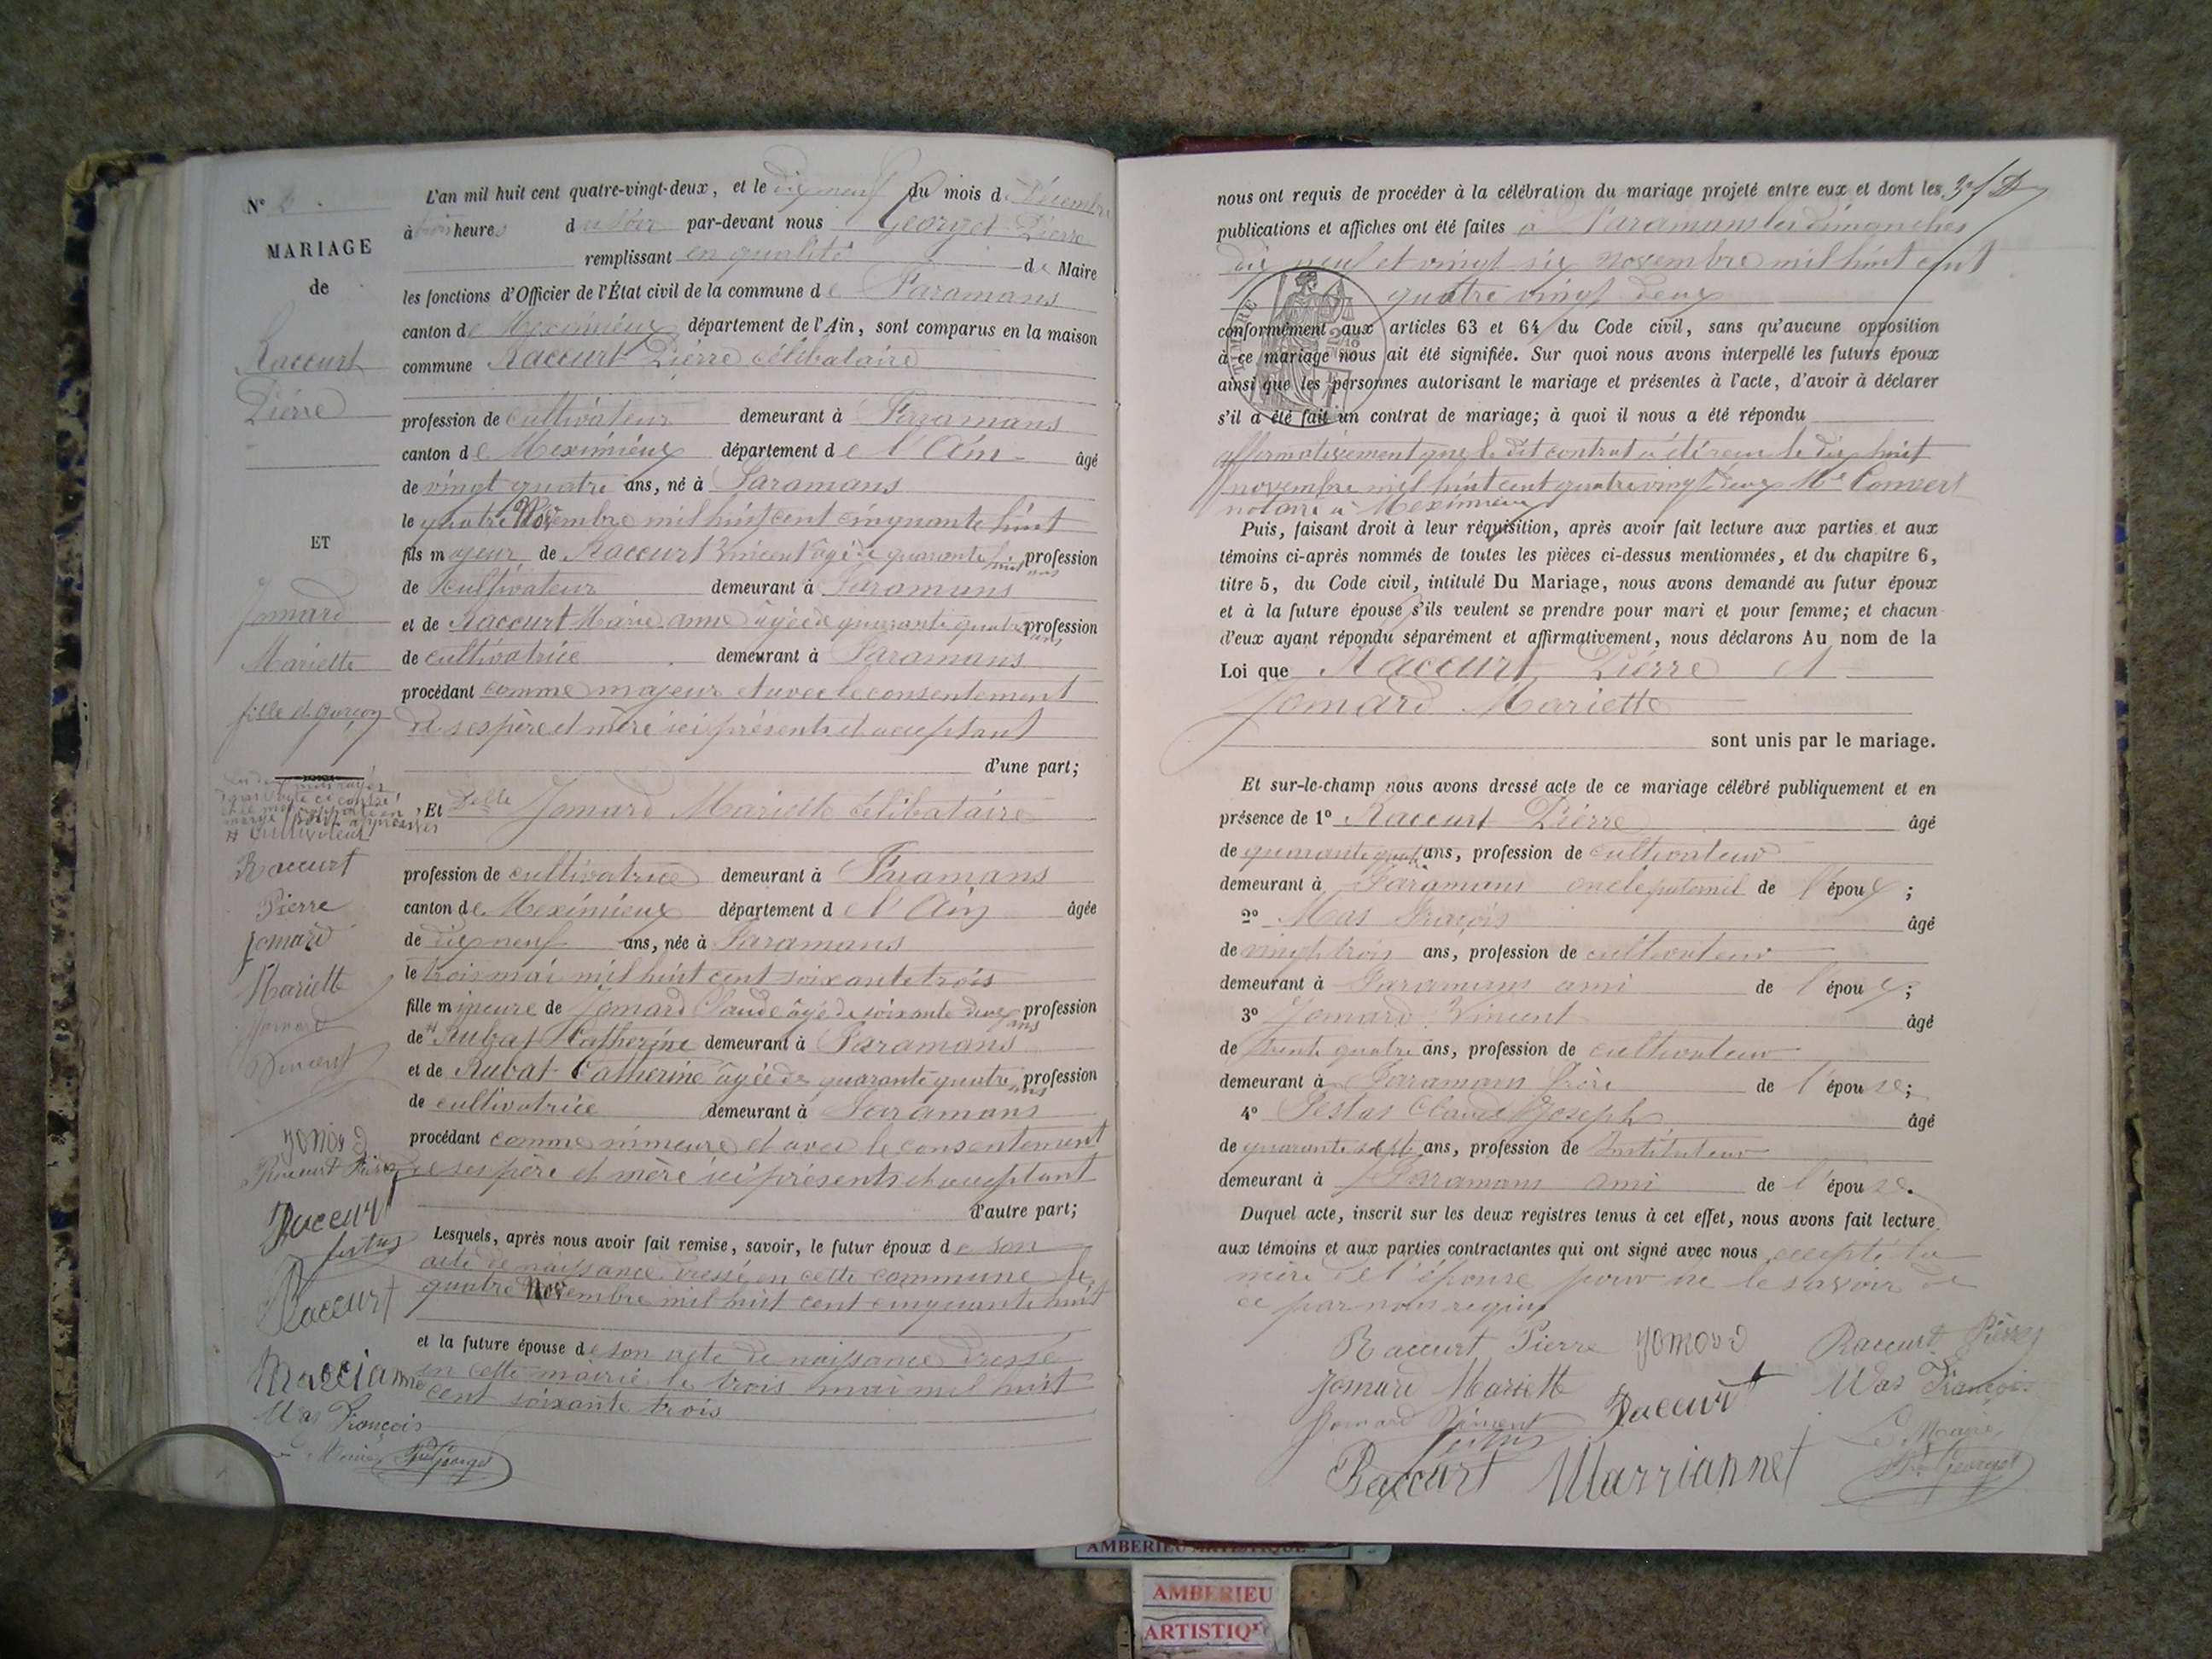 N° 
MARIAGE
de
Raccurt
Pierre
ET
Jomard
Mariette
fille et garçon
L'an mil huit cent quatre-vingt-deux, et le dix neuf du mois de Décembre
à trois heures du soir par-devant nous Georget Pierre
remplissant en qualité de Maire
les fonctions d'Officier de l'État civil de la commune de Faramans
canton de Meximieux département de l'Ain, sont comparus en la maison
commune Raccurt Pierre célibataire
profession de cultivateur demeurant à Faramans
canton de Meximieux département de l'Ain âgé
de vingt quatre ans, né à Faramans
le quatre Novembre mil huit cent cinquante huit
fils majeur de Raccurt Vincent âgé de quarante huit ans profession
de cultivateur demeurant à Faramans
et de Raccurt Marie anne âgée de quarante quatre ans profession
de cultivatrice demeurant à Faramans
procédant comme majeur et avec le consentement
de ses père et mère ici présents et acceptant
d'une part;
Et Delle Jomard Mariette célibataire
profession de cultivatrice demeurant à Faramans
canton de Meximieux département de l'Ain âgée
de dix neuf ans, née à Faramans
le trois mai mil huit cent soixante trois
fille mineure de Jomard Claude âgé de soixante deux ans profession
de # Rubat Catherine demeurant à Faramans
et de Rubat Catherine âgée de quarante quatre ans profession
de cultivatrice demeurant à Faramans
procédant comme mineure et avec le consentement
de ses père et mère ici présents et acceptant
d'autre part;
Lesquels, après nous avoir fait remise, savoir, le futur époux de son
acte de naissance dressé en cette commune le
quatre Novembre mil huit cent cinquante huit
et la future épouse de son acte de naissance dressé
en cette mairie le trois mai mil huit
cent soixante trois
# cultivateur
Raccurt
Pierre
Jomard
Mariette
Jomard
Vincent
Jomard
Raccurt Pierre
Raccurt
festus
Raccurt
Marrianne
Mas François
Le Maire
Georget
nous ont requis de procéder à la célébration du mariage projeté entre eux et dont les
publications et affiches ont été faites à Faramans les dimanches
dix neuf et vingt six novembre mil huit cent
quatre vingt deux
TIMBRE
conformément aux articles 63 et 64 du Code civil, sans qu'aucune opposition
à ce mariage nous ait été signifiée. Sur quoi nous avons interpellé les futurs époux
ainsi que les personnes autorisant le mariage et présentes à l'acte, d'avoir à déclarer
s'il a été fait un contrat de mariage; à quoi il nous a été répondu
affirmativement que le dit contrat a été reçu le dix huit
novembre mil huit cent quatre vingt deux Me Convert
notaire à Meximieux
Puis, faisant droit à leur réquisition, après avoir fait lecture aux parties et aux
témoins ci-après nommés de toutes les pièces ci-dessus mentionnées, et du chapitre 6,
titre 5, du Code civil, intitulé Du Mariage, nous avons demandé au futur époux
et à la future épouse s'ils veulent se prendre pour mari et pour femme; et chacun
d'eux ayant répondu séparément et affirmativement, nous déclarons Au nom de la
Loi que Raccurt Pierre et
Jomard Mariette
sont unis par le mariage.
Et sur-le-champ nous avons dressé acte de ce mariage célébré publiquement et en
présence de 1° Raccurt Pierre âgé
de quarante quatre ans, profession de cultivateur
demeurant à Faramans oncle paternel de l'époux;
2° Mas François âgé
de vingt trois ans, profession de cultivateur
demeurant à Faramans ami de l'époux;
3° Jomard Vincent âgé
de trente quatre ans, profession de cultivateur
demeurant à Faramans frère de l'épouse;
4° Festus Claude Joseph âgé
de quarante sept ans, profession de Instituteur
demeurant à Faramans ami de l'épouse.
Duquel acte, inscrit sur les deux registres tenus à cet effet, nous avons fait lecture
aux témoins et aux parties contractantes qui ont signé avec nous excepté la
mère de l'épouse pour ne le savoir de
ce par nous requis
Raccurt Pierre Jomard Raccurt Pierre
Jomard Mariette Raccurt Mas François
Jomard Vincent
festus
Le Maire
Raccurt Marrianne
Georget
AMBERIEU ARTISTIQUE
AMBERIEU
ARTISTIQUE